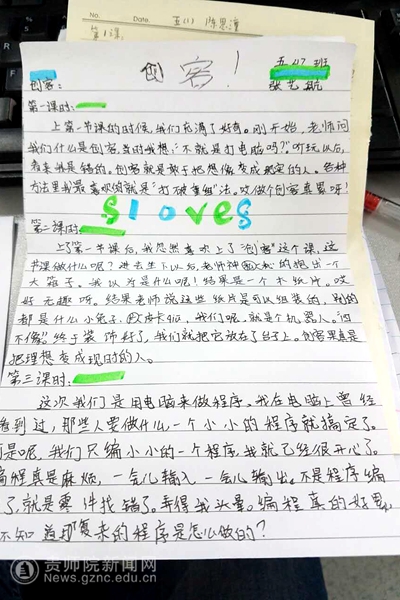 No. Date. 五(1) 陈思潼
第1课
创客!
五.(1)班
创客: 张艺航
第一课时:
上第一节课的时候,我们充满了好奇。刚开始,老师问
我们什么是创客,当时我想:“不就是打电脑吗?”听玩以后,
看来我是错的。创客就是敢于把想像变成现定的人。各种
方法里我最喜欢的就是“打破重组”法。哎做个创客真累呀!
sloves
第二课时:
上了第一节课后,我忽然喜欢上了“创客”这个课,这
节课做什么呢?进去坐下以后,老师神的抱出一个
大箱子。我以为是什么呢!结果是一个木纸片。哎
好无趣呀。结果老师说这些纸片是可以组装的,别的
都是什么小兔子,皮卡丘,我们呢,就是个机器人。
不像”终于装饰好了,我们就把它放在了台子上。创客果真是
把理想变成现时的人。
第三课时:
这次我们是用电脑来做程序。我在电脑上曾经
看到过,那些人要做什么,一个小小的程序就搞定了。
可是呢,我们只编小小的一个程序,我就已经很开心了。
编程真是麻烦,一会儿输入一会儿输出。不是程序编
了,就是零件找错了。弄得我头晕。编程真的好累,
不知道那复来的程序是怎么做的?
贵师院新闻网
News.gznc.edu.cn